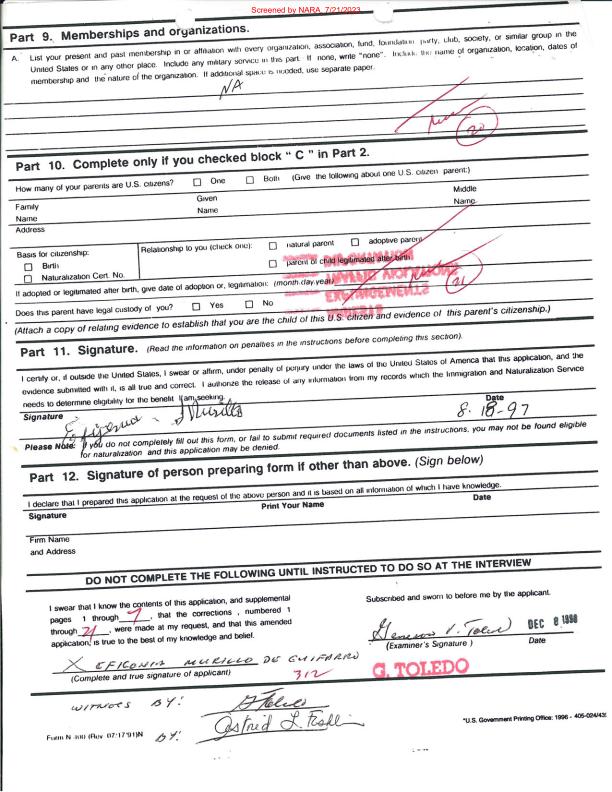 Screened by NARA, 7/21/2023
Part 9. Memberships and organizations.
A. List your present and past membership in or affiliation with every organization, association, fund, foundation party, club, society, or similar group in the
United States or in any other place. Include any military service in this part. If none, write "none". Include the name of organization, location, dates of
membership and the nature of the organization. If additional space is needed, use separate paper.
NA
20
Part 10. Complete only if you checked block " C " in Part 2.
How many of your parents are U.S. citizens? One Both (Give the following about one U.S. citizen parent:)
Family Given Middle
Name Name Name
Address
Basis for citizenship: Relationship to you (check one): natural parent adoptive parent
Birth parent of child legitimated after birth
Naturalization Cert. No.
21
If adopted or legitimated after birth, give date of adoption or, legitimation: (month day year)
Does this parent have legal custody of you? Yes No
(Attach a copy of relating evidence to establish that you are the child of this U.S. citizen and evidence of this parent's citizenship.)
Part 11. Signature. (Read the information on penalties in the instructions before completing this section).
I certify or, if outside the United States, I swear or affirm, under penalty of perjury under the laws of the United States of America that this application, and the
evidence submitted with it, is all true and correct. I authorize the release of any information from my records which the Immigration and Naturalization Service
needs to determine eligibility for the benefit I am seeking.
Signature Date
Efigenia Murillo 8-18-97
Please Note: If you do not completely fill out this form, or fail to submit required documents listed in the instructions, you may not be found eligible
for naturalization and this application may be denied.
Part 12. Signature of person preparing form if other than above. (Sign below)
I declare that I prepared this application at the request of the above person and it is based on all information of which I have knowledge.
Signature Print Your Name Date
Firm Name
and Address
DO NOT COMPLETE THE FOLLOWING UNTIL INSTRUCTED TO DO SO AT THE INTERVIEW
I swear that I know the contents of this application, and supplemental
pages 1 through 7, that the corrections, numbered 1
through 21, were made at my request, and that this amended
application, is true to the best of my knowledge and belief.
X EFIGONIA MURILLO DE GUIFARRO
(Complete and true signature of applicant)
312
Subscribed and sworn to before me by the applicant.
DEC 8 1998
(Examiner's Signature) Date
G. TOLEDO
WITNESS BY:
BY:
Form N-400 (Rev. 07/17/91)N
*U.S. Government Printing Office: 1996 - 405-024/435